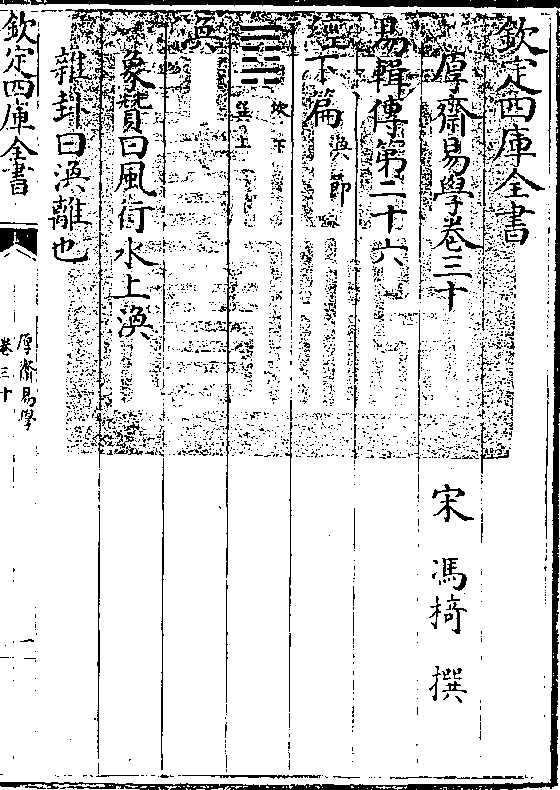 欽定四庫全書
厚齋易學卷三十
宋 馮椅 撰
易輯傳第二十六
經下篇 渙 節
䷺ 坎下 巽上
渙
象贊曰風行水上渙
雜卦曰渙離也
欽定四庫全書
厚齋易學
卷三十
一